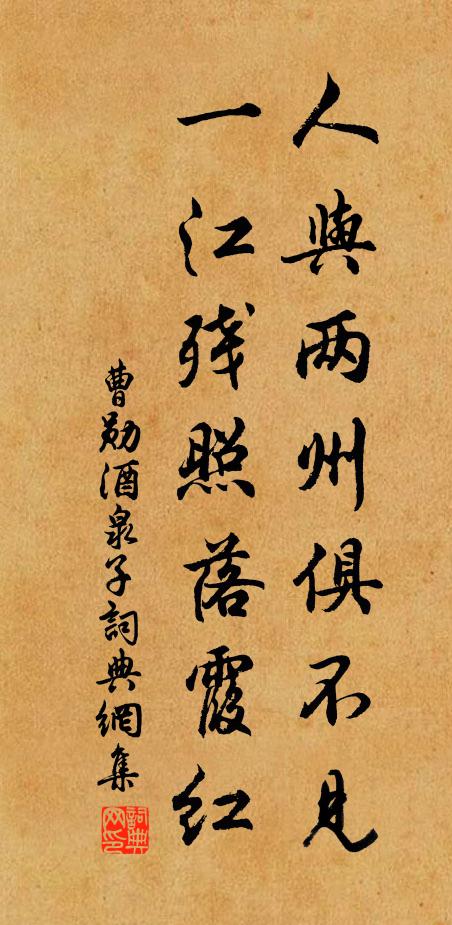 人與两州俱不見
一江残照落霞红
曹勛酒泉子詞典網集
詞典网印